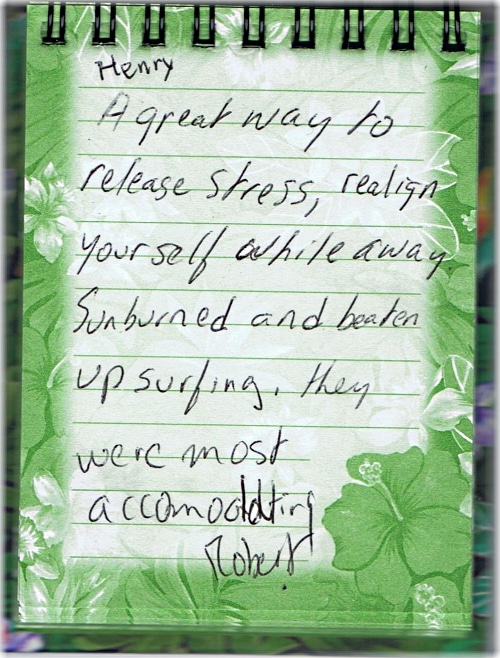 Henry
A great way to
release stress, realign
yourself while away.
Sunburned and beaten
up surfing, they
were most
accomodating
Robert